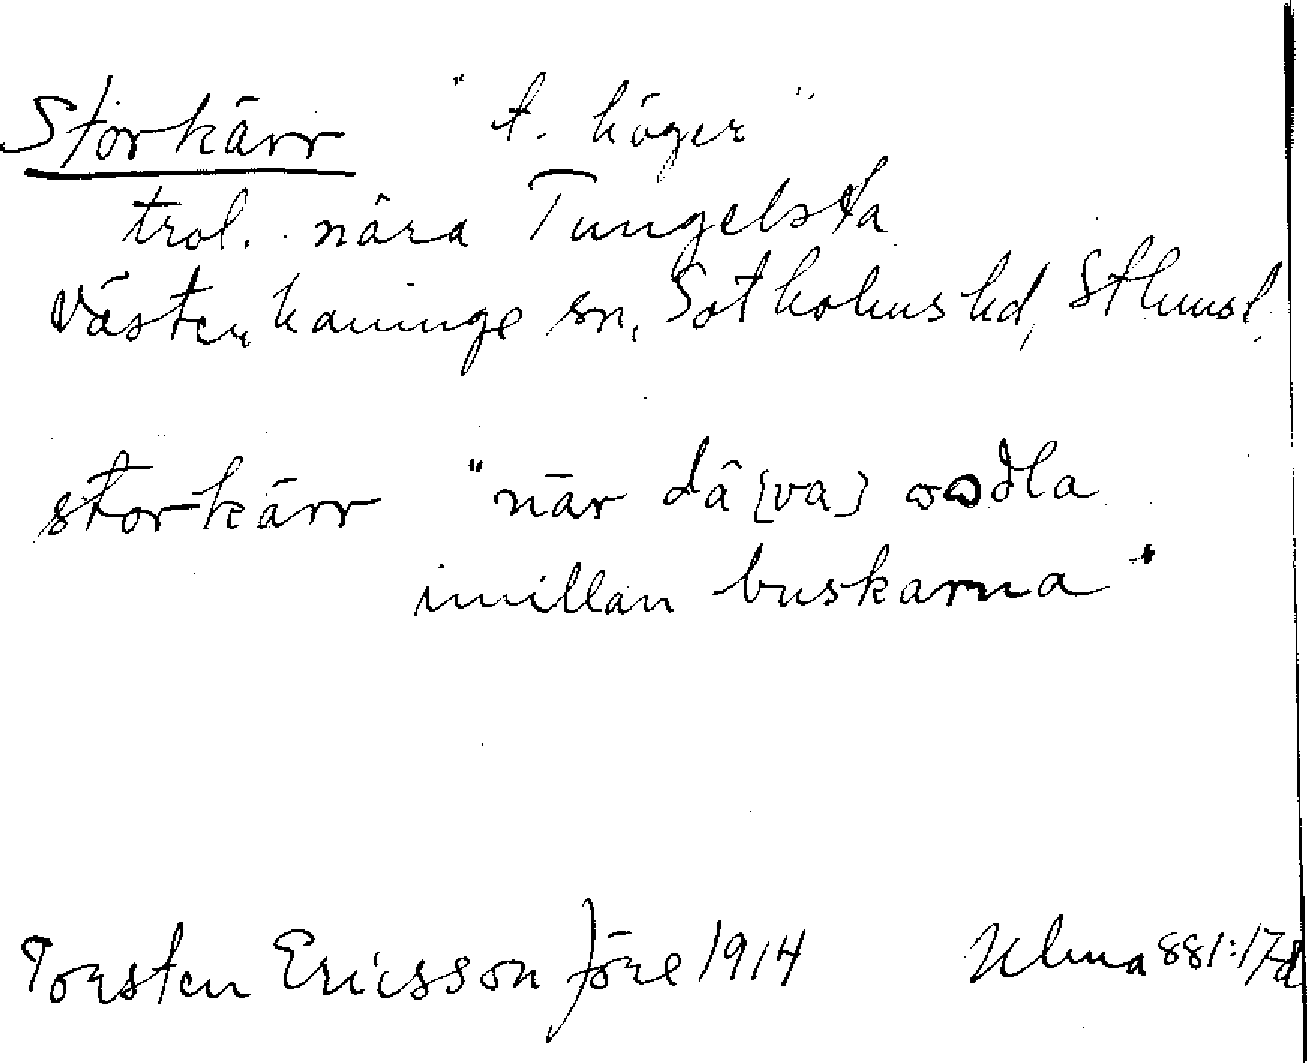 Storkärr "t. höger"
trol. nära Tungelsta
Västerhaninge sn, Sotholms hd, Sthmsl.
storkärr "när dä [va] oodla
imillan buskarna"
Torsten Ericsson före 1914 Ulma 881:17d